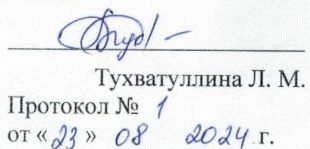 Тухватуллина Л. М.
Протокол № 1
от « 23 » 08 2024 г.